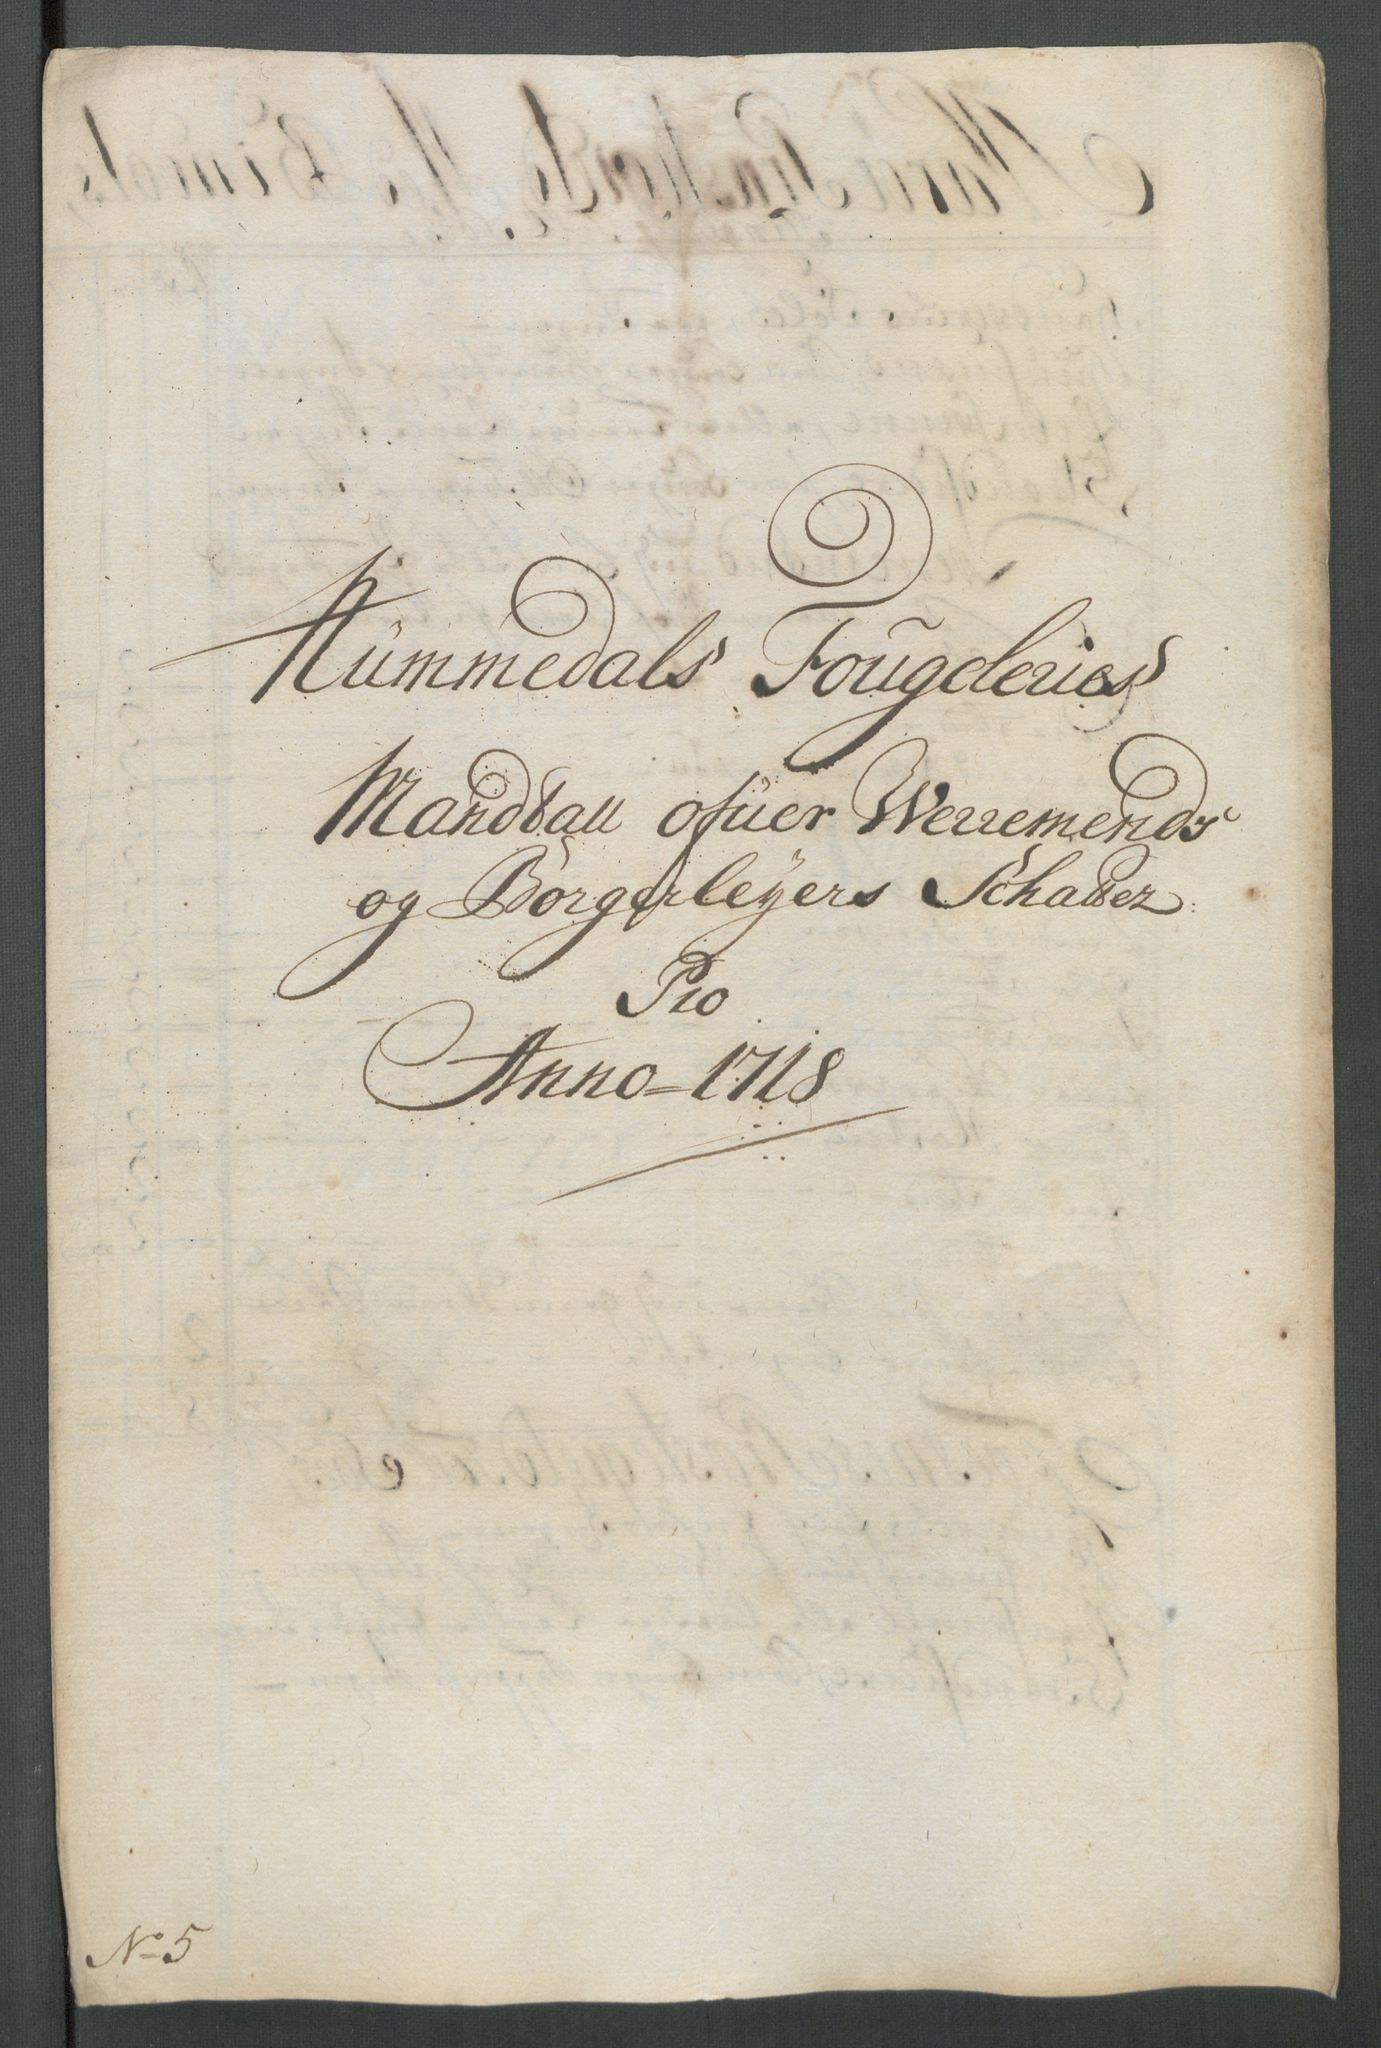 Nummedals Fougderies
Mandtall ofuer Werremends
og Borgerleyers Schatter
Pro
Anno = 1718
No 5